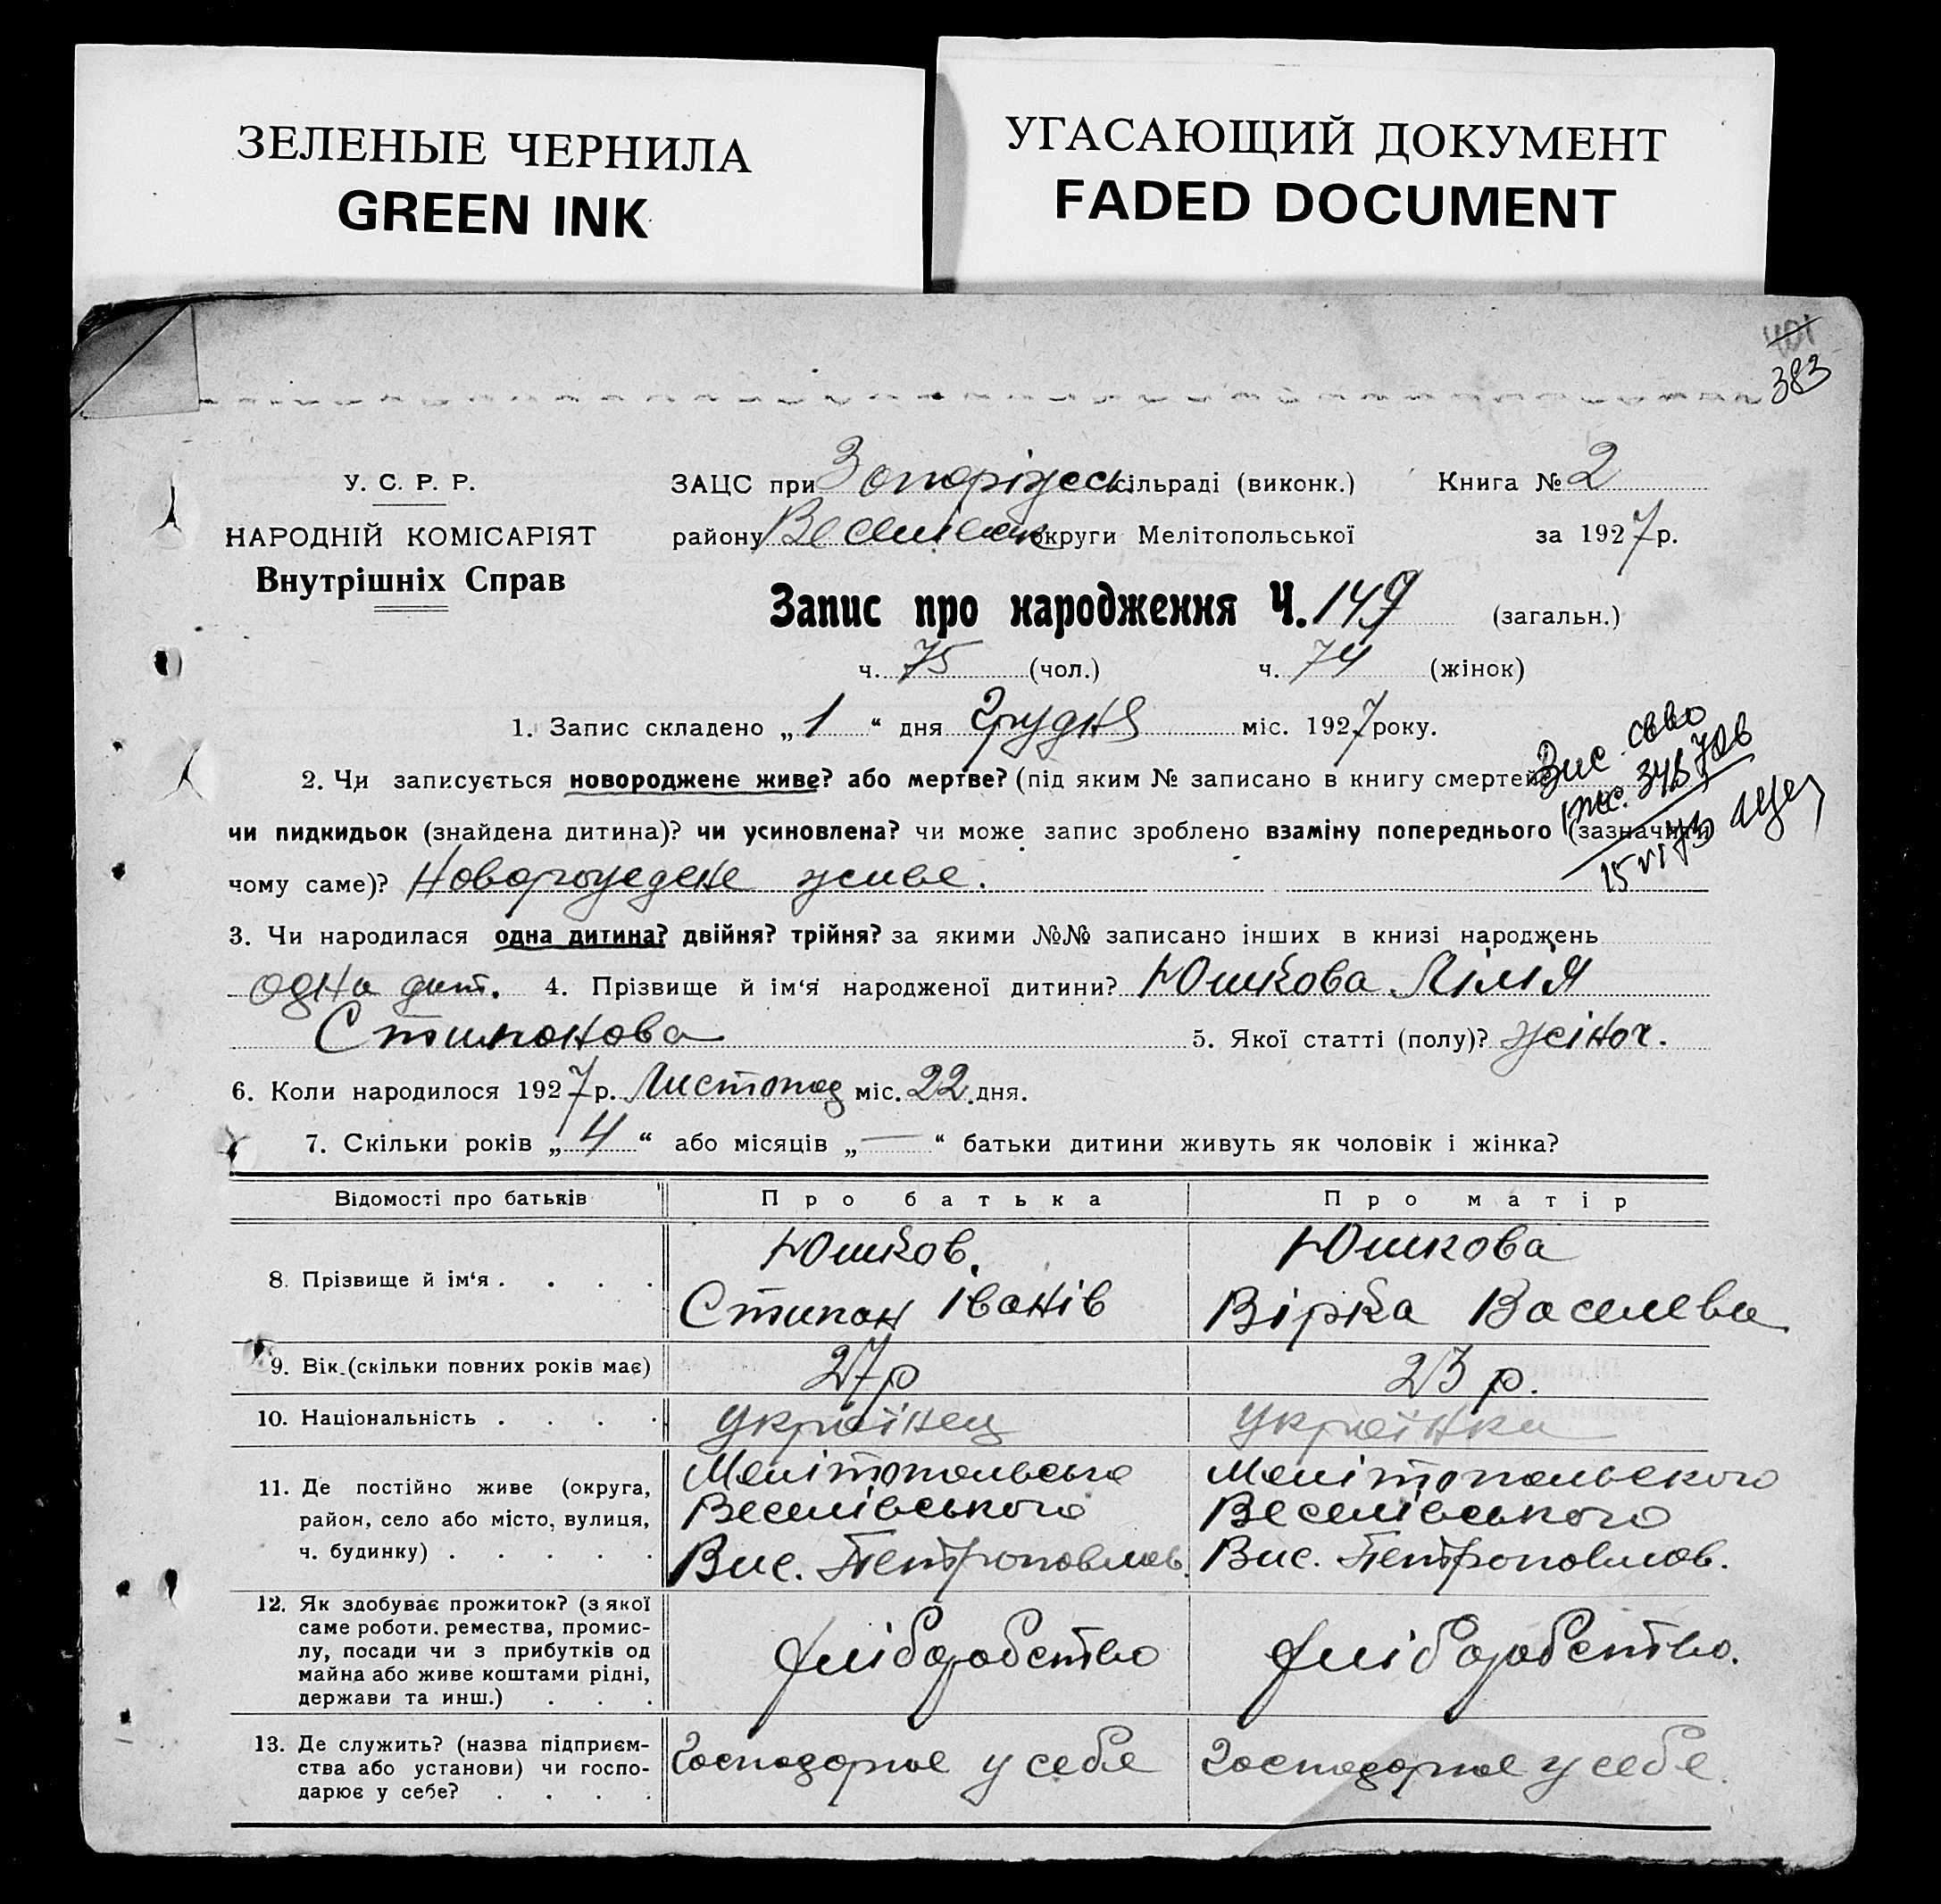 ЗЕЛЕНЫЕ ЧЕРНИЛА
GREEN INK
УГАСАЮЩИЙ ДОКУМЕНТ
FADED DOCUMENT
401
383
У. С. Р. Р.
НАРОДНІЙ КОМІСАРІЯТ
Внутрішніх Справ
ЗАЦС при Запоріжськ. сільраді (виконк.) Книга № 2
району Веселівськ округи Мелітопольської за 1927 р.
Запис про народження Ч. 149 (загальн.)
ч. 75 (чол.) ч. 74 (жінок)
1. Запис складено „ 1 “ дня Грудня міс. 1927 року.
2. Чи записується новороджене живе? або мертве? (під яким № записано в книгу смертей)
чи пидкидьок (знайдена дитина)? чи усиновлена? чи може запис зроблено взаміну попереднього (зазначити
чому саме)? Новорожедене живе.
3. Чи народилася одна дитина? двійня? трійня? за якими №№ записано інших в книзі народжень
одна дит. 4. Прізвище й ім‘я народженої дитини? Юшкова Лілія
Стипонова 5. Якої статті (полу)? жіноч.
6. Коли народилося 1927 р. Листопад міс. 22 дня.
7. Скільки років „ 4 “ або місяців „ — “ батьки дитини живуть як чоловік і жінка?
Відомості про батьків Про батька Про матір
8. Прізвище й ім‘я . . . . Юшков. Стипан Іванів Юшкова Вірка Василева
9. Вік (скільки повних років має) 27 р 23 р.
10. Національність . . . . українец українка
11. Де постійно живе (округа,
район, село або місто, вулиця,
ч. будинку) . . . . .
Мелітопольсько
Веселівського
Вис. Петроповлов.
Мелітопольского
Веселівського
Вис. Петроповлов.
12. Як здобуває прожиток? (з якої
саме роботи, ремества, промис-
лу, посади чи з прибутків од
майна або живе коштами рідні,
держави та инш.) . . .
хліборобство
хліборобство.
13. Де служить? (назва підприєм-
ства або установи) чи госпо-
дарює у себе? . . . .
Господорює у себе
Господорює у себе.